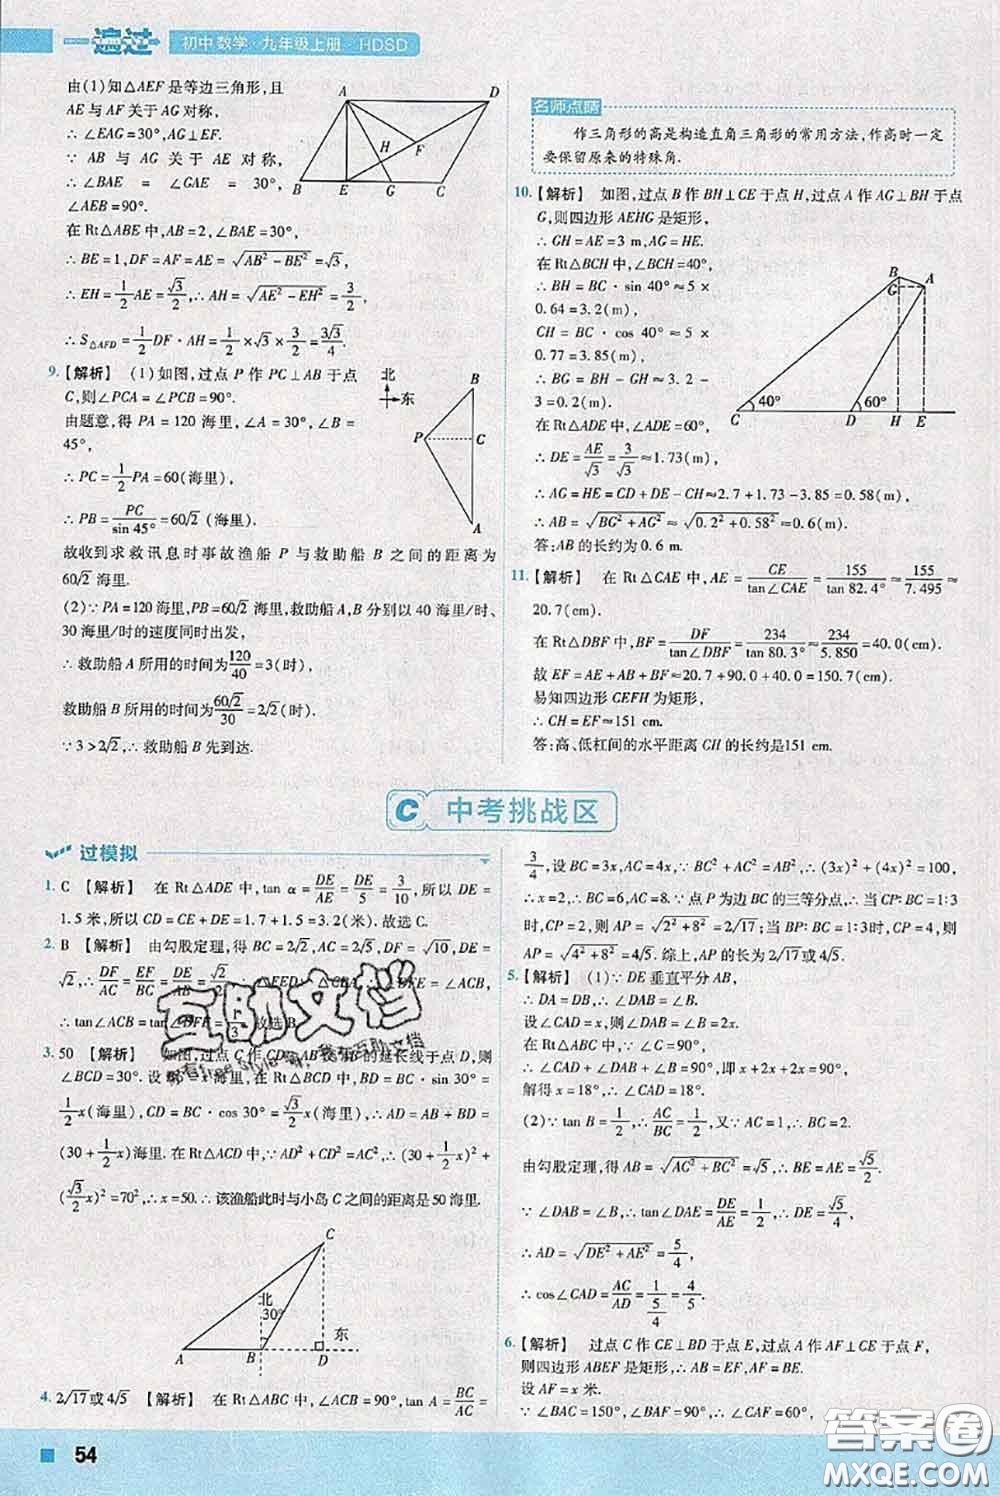 一遍过 初中数学·九年级上册 HDSD
由(1)知△AEF 是等边三角形,且
AE 与 AF 关于 AG 对称,
∴ ∠EAG=30°,AG⊥EF.
∵ AB 与 AG 关于 AE 对称,
∴ ∠BAE = ∠GAE = 30°,
∠AEB=90°.
在 Rt△ABE 中,AB=2,∠BAE=30°,
∴ BE=1,DF=AF=AE=√(AB²-BE²)=√3,
∴ EH=1/2 AE=√3/2,∴ AH=√(AE²-EH²)=3/2,
∴ S△AFD=1/2 DF·AH=1/2×√3×3/2=3√3/4.
A D H F B E G C
9.【解析】 (1)如图,过点 P 作 PC⊥AB 于点
C,则∠PCA=∠PCB=90°.
由题意,得 PA=120 海里,∠A=30°,∠B=
45°,
∴ PC=1/2 PA=60(海里),
∴ PB=PC/sin 45°=60√2 (海里).
北 东 B P C A
故收到求救讯息时事故渔船 P 与救助船 B 之间的距离为
60√2 海里.
(2)∵ PA=120 海里,PB=60√2 海里,救助船A,B 分别以 40 海里/时、
30 海里/时的速度同时出发,
∴ 救助船 A 所用的时间为120/40=3(时),
救助船 B 所用的时间为60√2/30=2√2(时).
∵ 3>2√2,∴ 救助船 B 先到达.
名师点睛
作三角形的高是构造直角三角形的常用方法,作高时一定
要保留原来的特殊角.
10.【解析】 如图,过点 B 作 BH⊥CE 于点 H,过点 A 作 AG⊥BH 于点
G,则四边形 AEHG 是矩形,
∴ GH=AE=3 m,AG=HE.
在 Rt△BCH 中,∠BCH=40°,
∴ BH = BC · sin 40° ≈ 5 ×
0.64=3.2(m),
CH = BC · cos 40° ≈ 5 ×
0.77=3.85(m),
∴ BG = BH - GH ≈ 3.2 -
3=0.2(m).
在 Rt△ADE 中,∠ADE=60°,
∴ DE=AE/√3=3/√3≈1.73(m),
B G A 40° 60° C D H E
∴ AG=HE=CD+DE-CH≈2.7+1.73-3.85=0.58(m),
∴ AB=√(BG²+AG²)≈√(0.2²+0.58²)≈0.6(m).
答:AB 的长约为 0.6 m.
11.【解析】 在 Rt△CAE 中,AE=CE/tan∠CAE=155/tan 82.4°≈155/7.495≈
20.7(cm),
在 Rt△DBF 中,BF=DF/tan∠DBF=234/tan 80.3°≈234/5.850=40.0(cm),
故 EF=AE+AB+BF≈20.7+90.0+40.0=150.7(cm).
易知四边形 CEFH 为矩形,
∴ CH=EF≈151 cm.
答:高、低杠间的水平距离 CH 的长约是151 cm.
C 中考挑战区
过模拟
1. C 【解析】 在 Rt△ADE 中,tan α=DE/AE=DE/5=3/10,所以 DE=
1.5 米,所以 CD=CE+DE=1.7+1.5=3.2(米). 故选 C.
2. B 【解析】 由勾股定理,得 BC=2√2,AC=2√5,DF=√10,DE=
√2,∴ DF/AC=EF/BC=DE/AB=√2/2,∴ △FED ∠DFE = ∠ACB,
∴ tan∠ACB=tan∠DFE= 3 故选 B.
3. 50 【解析】 如图,过点 C 作 CD⊥AB 交 AB 的延长线于点 D,则
∠BCD=30°. 设 BC= 海里,则 BD=BC·sin 30°=
1/2 x(海里),CD=BC·cos 30°=√3/2 x(海里),∴ AD=AB+BD=
(30+1/2 x)海里. 在 Rt△ACD 中,AD²+CD²=AC²,∴ (30+1/2 x)²+
(√3/2 x)²=70²,∴ x=50. ∴ 该渔船此时与小岛 C 之间的距离是 50 海里.
C 北 30° 东 A B D
4. 2√17或4√5 【解析】 在 Rt△ABC 中,∠ACB=90°,tan A=BC/AC=
3/4,设 BC=3x,AC=4x,∵ BC²+AC²=AB²,∴ (3x)²+(4x)²=100,
∴ x=2,∴ BC=6,AC=8. ∵ 点 P 为边 BC 的三等分点,∴ 当 CP:BC=1:3
时,CP=2,然后 AP=√(2²+8²)=2√17;当 BP:BC=1:3时,CP=4,则
AP=√(4²+8²)=4√5. 综上,AP 的长为 2√17或4√5.
5.【解析】 (1)∵ DE 垂直平分 AB,
∴ DA=DB,∴ ∠DAB=∠B.
设∠CAD=x,则∠DAB=∠B=2x.
在 Rt△ABC 中,∵ ∠C=90°,
∴ ∠CAD+∠DAB+∠B=90°,即 x+2x+2x=90°,
解得 x=18°,∴ ∠CAD=18°.
(2)∵ tan B=1/2,∴ AC/BC=1/2,又∵ AC=1,∴ BC=2.
由勾股定理,得 AB=√(AC²+BC²)=√5,∴ BE=AE=√5/2.
∵ ∠DAB=∠B,∴ tan∠DAE=DE/AE=1/2,∴ DE=√5/4,
∴ AD=√(DE²+AE²)=5/4,
∴ cos∠CAD=AC/AD=1/(5/4)=4/5.
6.【解析】 过点 C 作 CE⊥BD 于点 E,过点 A 作 AF⊥CE 于点 F,
则四边形 ABEF 是矩形,∴ AB=FE,AF=BE.
设 AF=x 米.
∵ ∠BAC=150°,∠BAF=90°,∴ ∠CAF=60°,
54
互助文档
答案圈
MXQE.COM